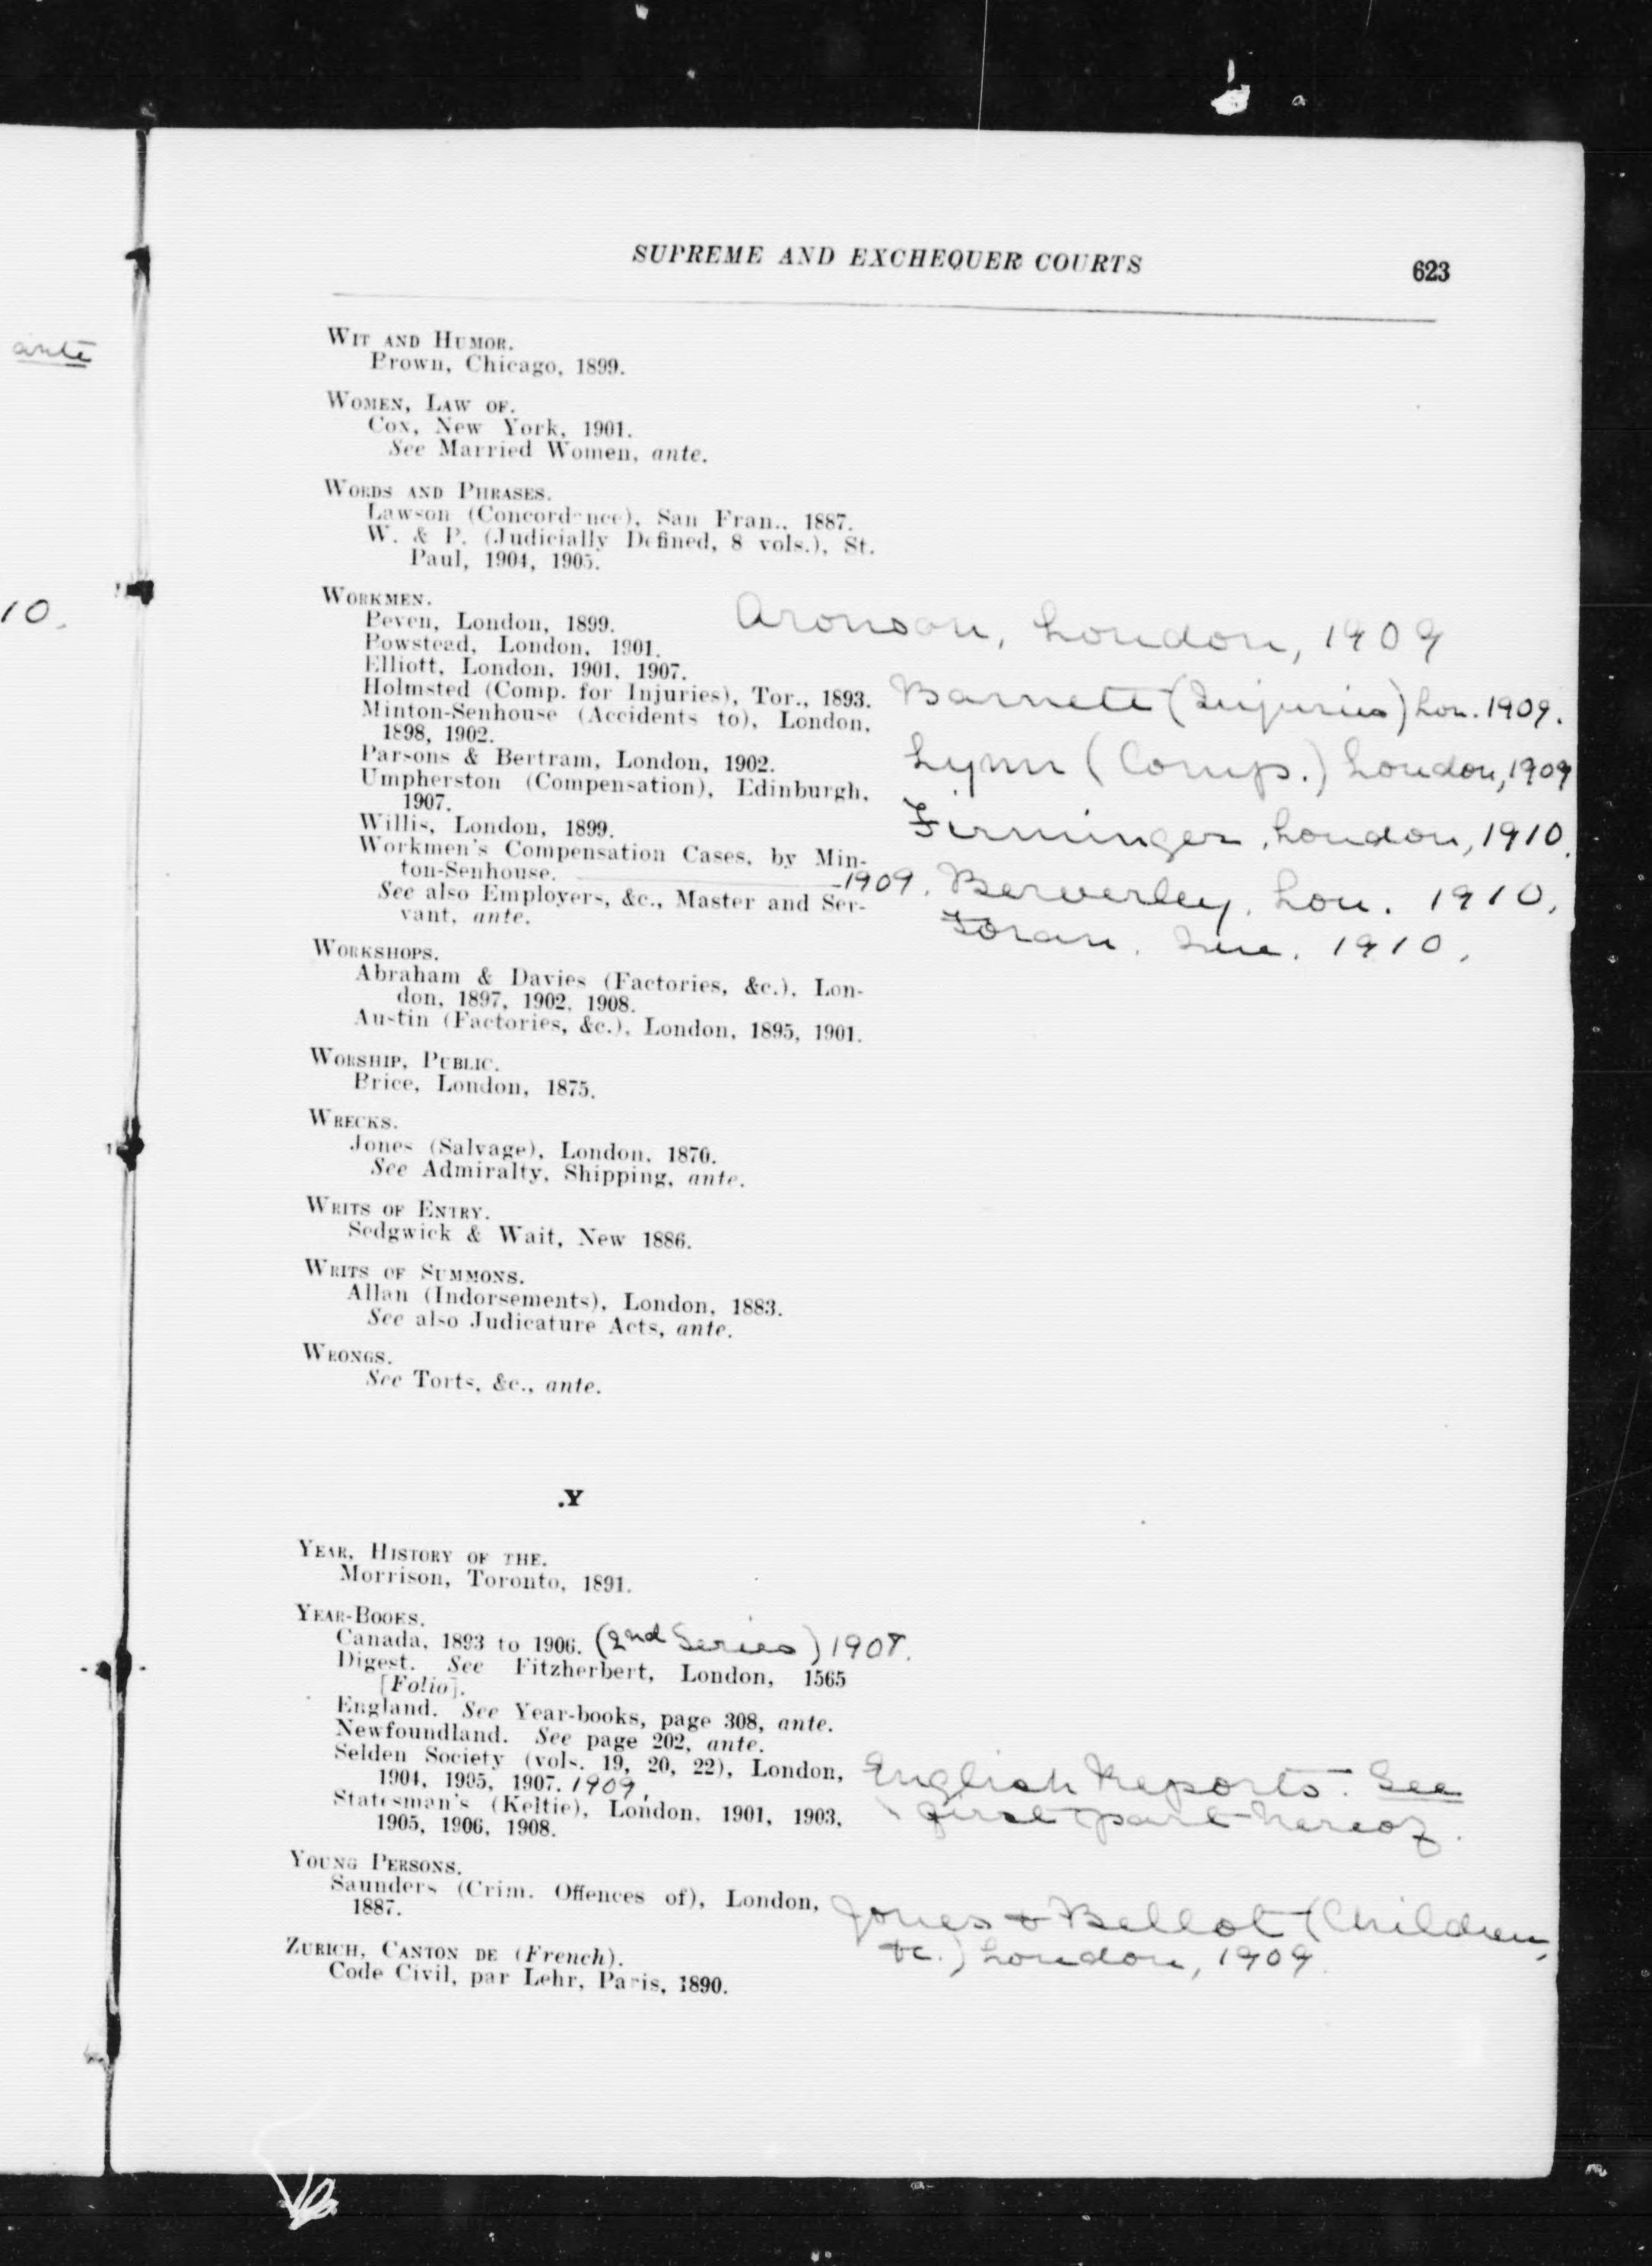 SUPREME AND EXCHEQUER COURTS 623
ante
10.
WIT AND HUMOR.
Brown, Chicago, 1899.
WOMEN, LAW OF.
Cox, New York, 1901.
See Married Women, ante.
WORDS AND PHRASES.
Lawson (Concordance), San Fran., 1887.
W. & P. (Judicially Defined, 8 vols.), St.
Paul, 1904, 1905.
WORKMEN.
Beven, London, 1899. Aronson, London, 1909
Bowstead, London, 1901.
Elliott, London, 1901, 1907.
Holmsted (Comp. for Injuries), Tor., 1893. Barnett (Injuries) Lon. 1909.
Minton-Senhouse (Accidents to), London,
1898, 1902.
Parsons & Bertram, London, 1902. Lynn (Comp.) London, 1909
Umpherston (Compensation), Edinburgh,
1907.
Willis, London, 1899. Firminger, London, 1910.
Workmen's Compensation Cases, by Min-
ton-Senhouse. 1909. Berverley, Lon. 1910.
See also Employers, &c., Master and Ser-
vant, ante. Foran. Que. 1910.
WORKSHOPS.
Abraham & Davies (Factories, &c.), Lon-
don, 1897, 1902, 1908.
Austin (Factories, &c.), London, 1895, 1901.
WORSHIP, PUBLIC.
Brice, London, 1875.
WRECKS.
Jones (Salvage), London, 1870.
See Admiralty, Shipping, ante.
WRITS OF ENTRY.
Sedgwick & Wait, New 1886.
WRITS OF SUMMONS.
Allan (Indorsements), London, 1883.
See also Judicature Acts, ante.
WRONGS.
See Torts, &c., ante.
.Y
YEAR, HISTORY OF THE.
Morrison, Toronto, 1891.
YEAR-BOOKS.
Canada, 1893 to 1906. (2nd Series) 1908.
Digest. See Fitzherbert, London, 1565
[Folio].
England. See Year-books, page 308, ante.
Newfoundland. See page 202, ante.
Selden Society (vols. 19, 20, 22), London,
1904, 1905, 1907. 1909. English Reports. See
Statesman's (Keltie), London, 1901, 1903, first part hereof.
1905, 1906, 1908.
YOUNG PERSONS.
Saunders (Crim. Offences of), London,
1887. Jones & Bellot (Children,
&c.) London, 1909.
ZURICH, CANTON DE (French).
Code Civil, par Lehr, Paris, 1890.